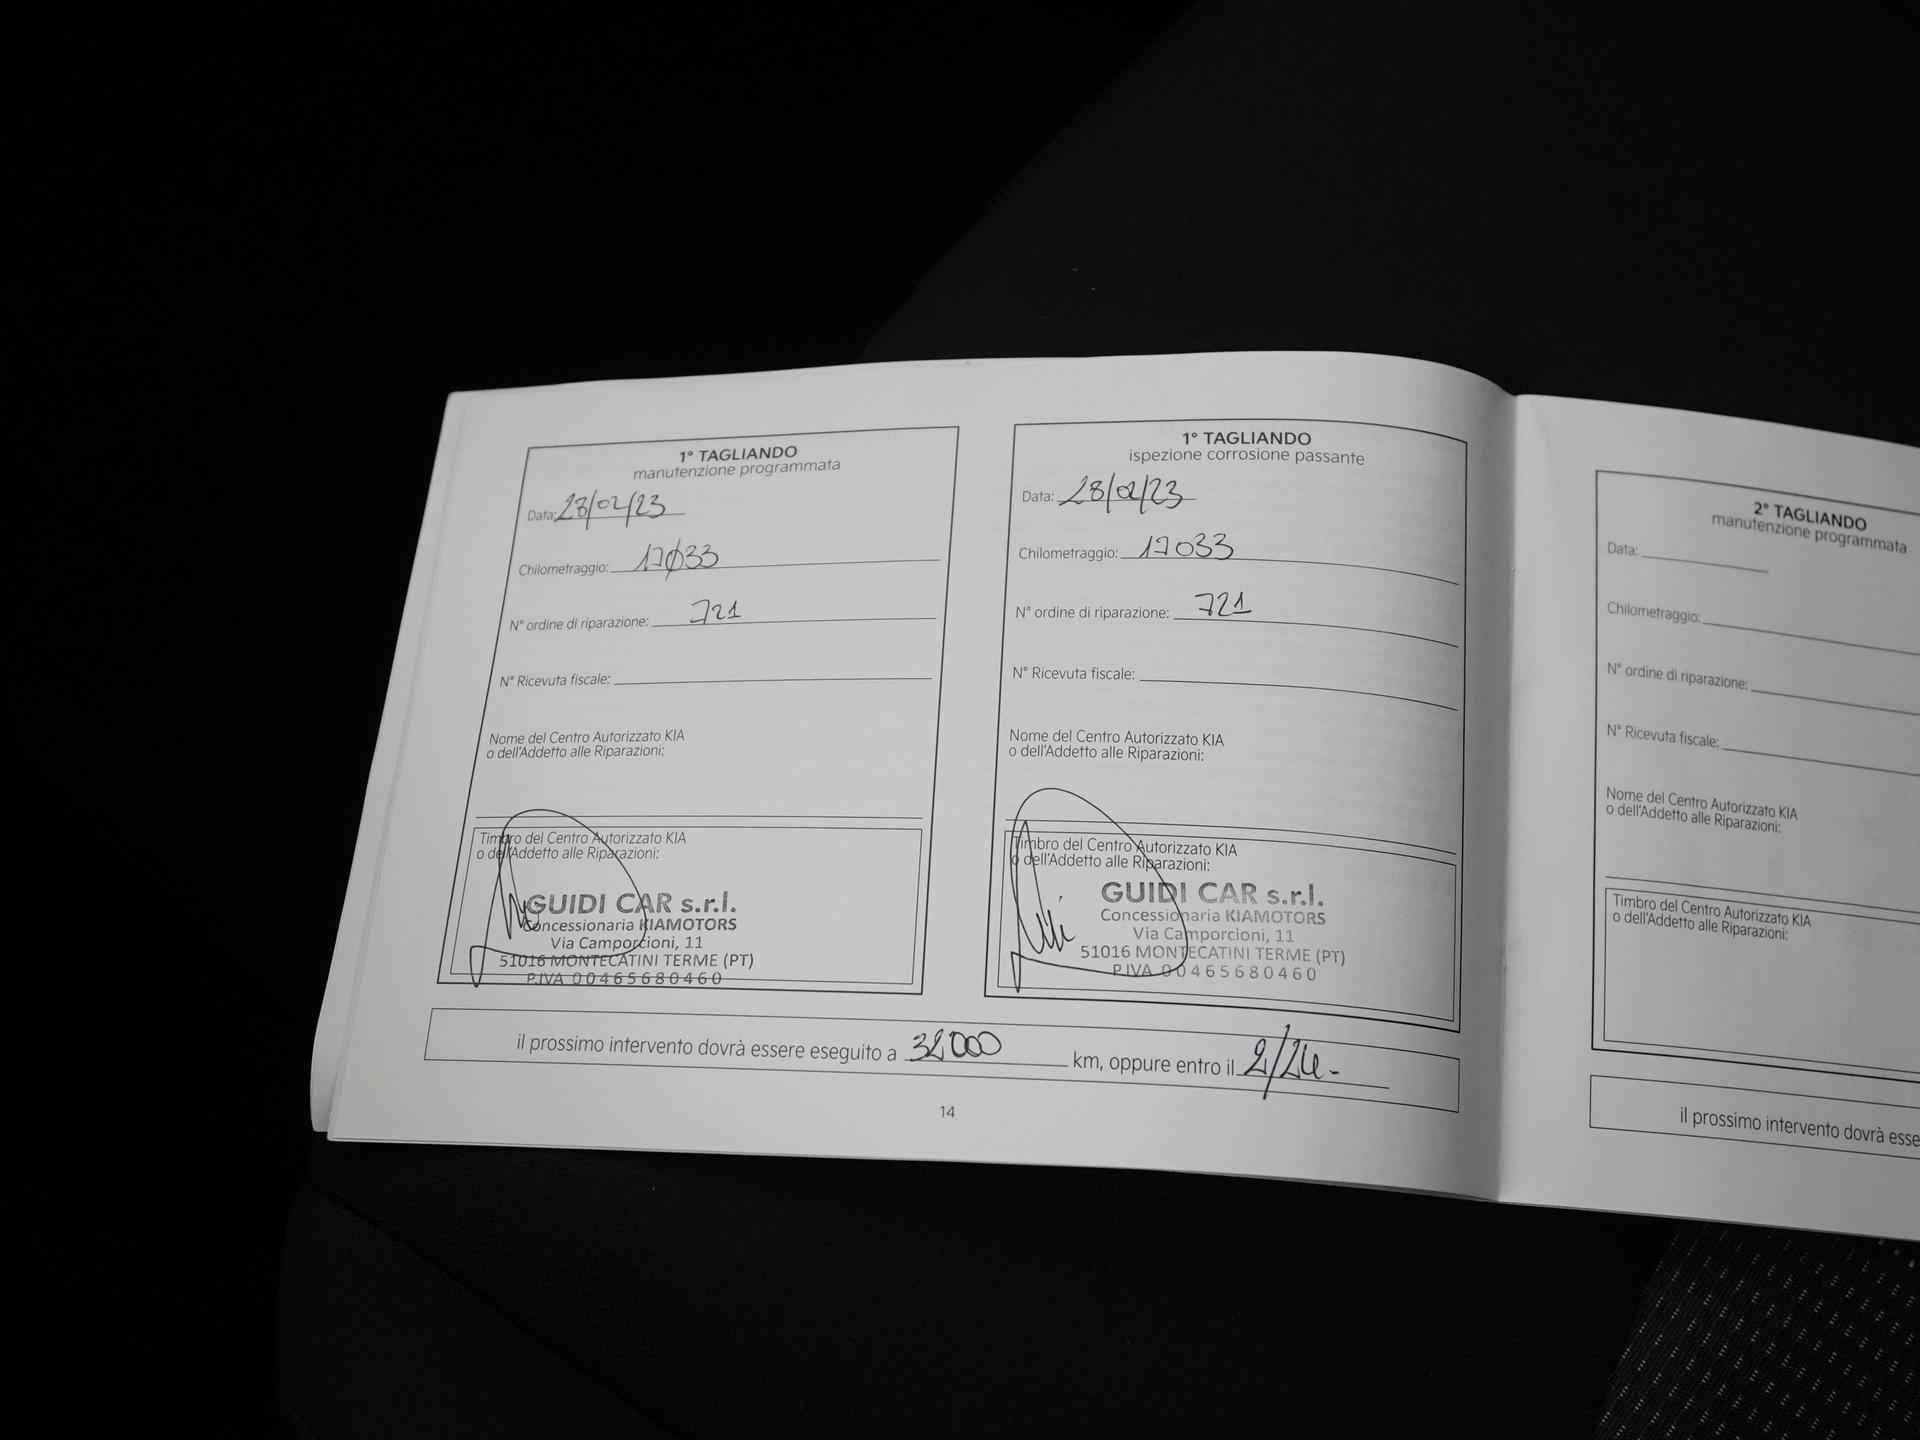 1° TAGLIANDO
manutenzione programmata
Data: 28/02/23
Chilometraggio: 17033
N° ordine di riparazione: 721
N° Ricevuta fiscale:
Nome del Centro Autorizzato KIA
o dell'Addetto alle Riparazioni:
Timbro del Centro Autorizzato KIA
o dell'Addetto alle Riparazioni:
GUIDI CAR s.r.l.
Concessionaria KIAMOTORS
Via Camporcioni, 11
51016 MONTECATINI TERME (PT)
P.IVA 00465680460
1° TAGLIANDO
ispezione corrosione passante
Data: 28/02/23
Chilometraggio: 17033
N° ordine di riparazione: 721
N° Ricevuta fiscale:
Nome del Centro Autorizzato KIA
o dell'Addetto alle Riparazioni:
Timbro del Centro Autorizzato KIA
o dell'Addetto alle Riparazioni:
GUIDI CAR s.r.l.
Concessionaria KIAMOTORS
Via Camporcioni, 11
51016 MONTECATINI TERME (PT)
P.IVA 00465680460
il prossimo intervento dovrà essere eseguito a 32000 km, oppure entro il 2/24.
14
2° TAGLIANDO
manutenzione programmata
Data:
Chilometraggio:
N° ordine di riparazione:
N° Ricevuta fiscale:
Nome del Centro Autorizzato KIA
o dell'Addetto alle Riparazioni:
Timbro del Centro Autorizzato KIA
o dell'Addetto alle Riparazioni:
il prossimo intervento dovrà esse